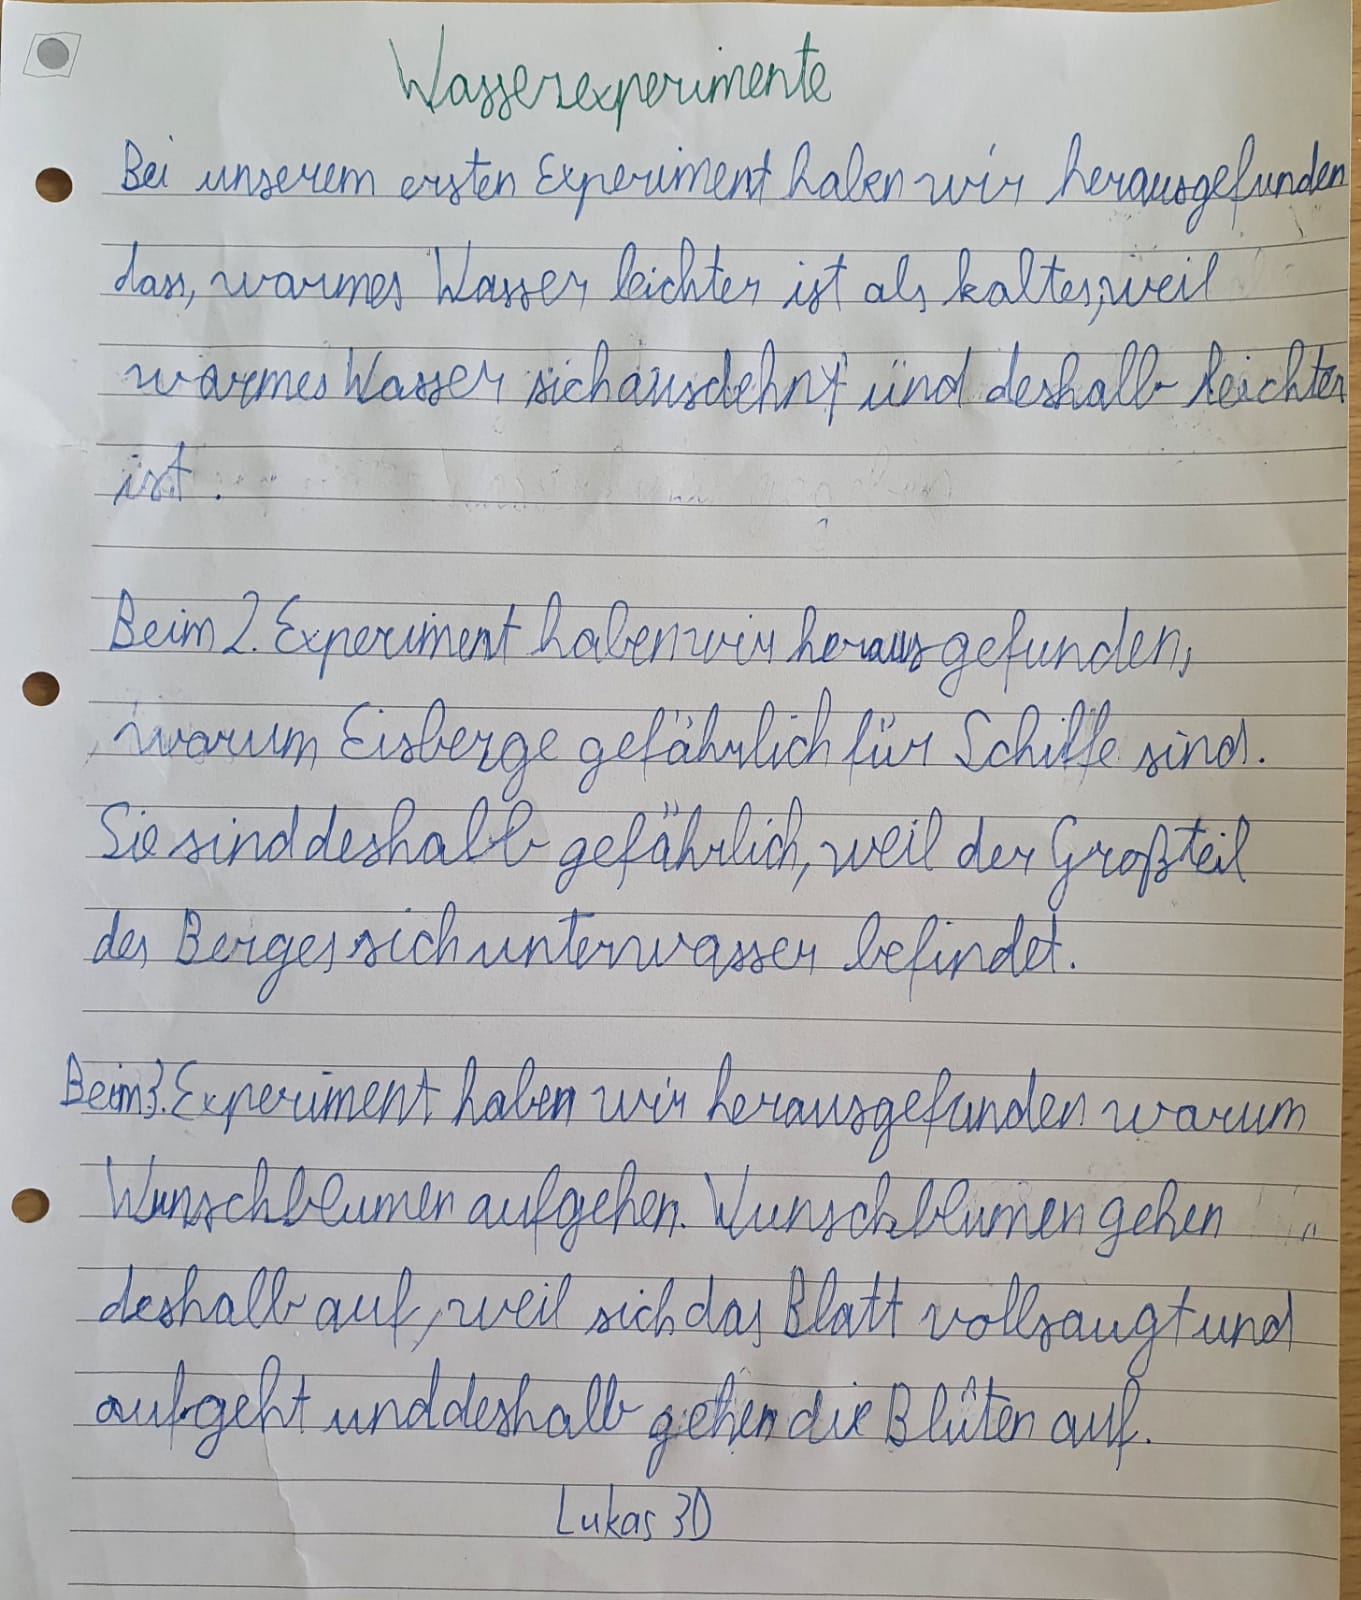 Wasserexperimente
Bei unserem ersten Experiment haben wir herausgefunden
dass, warmes Wasser leichter ist als kaltes, weil
warmes Wasser sich ausdehnt und deshalb leichter
ist.
Beim 2. Experiment haben wir herausgefunden,
warum Eisberge gefährlich für Schiffe sind.
Sie sind deshalb gefährlich, weil der Großteil
des Berges sich unterwasser befindet.
Beim 3. Experiment haben wir herausgefunden warum
Wunschblumen aufgehen. Wunschblumen gehen
deshalb auf, weil sich das Blatt vollsaugt und
aufgeht und deshalb gehen die Blüten auf.
Lukas 3D